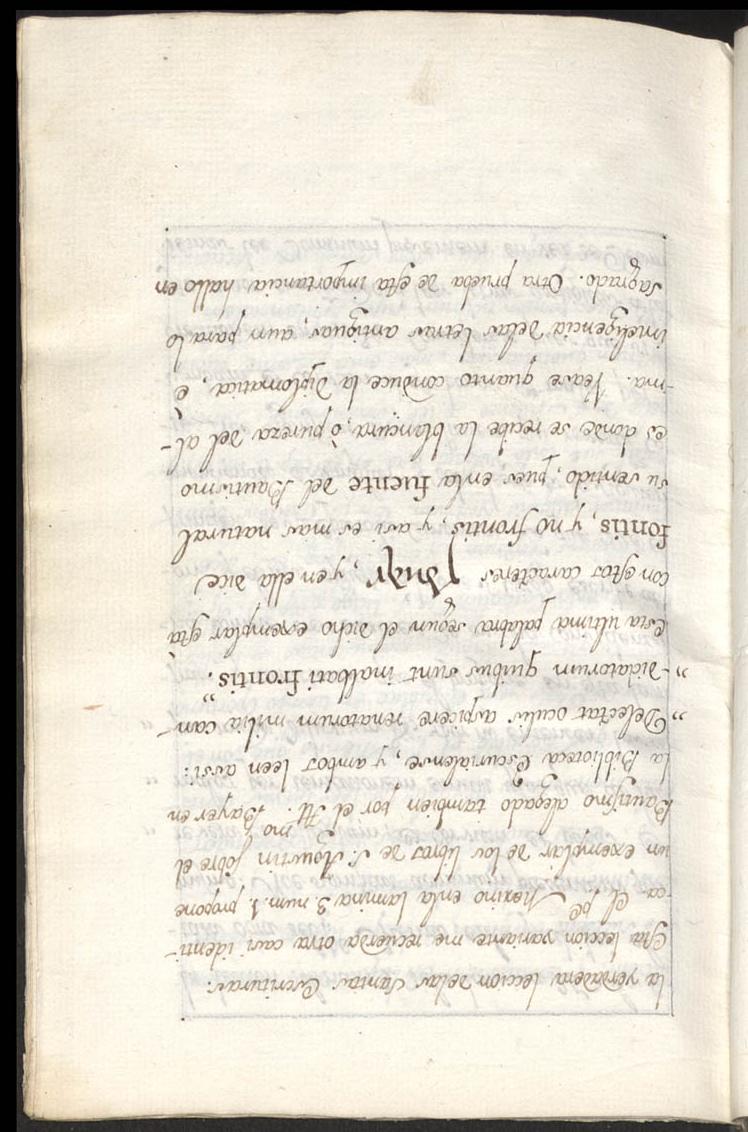 la verdadera leccion delas Santas Escrituras:
Esta leccion variante me recuerda otra casi identi-
ca. El pe. Merino enla lamina 3. num. 1. propone
un exemplar de los libros de S. Agustin sobre el
Bautismo alegado tambien por el Ill.mo Bayer en
la Biblioteca Escurialense, y ambos leen assi:
„ Delectat oculis aspicere renatorum milia can-
„ didatorum quibus sunt inalbati frontis.„
Esta ultima palabra segun el dicho exemplar està
con estos caractères y en ella dice
fontis, y no frontis, y asi es mas natural
su sentido, pues enla fuente del Bautismo
es donde se recibe la blancura, ò pureza del al-
-ma. Vease quanto conduce la Diplomatica, è
inteligencia delas letras antiguas, aun para lo
sagrado. Otra prueba de esta importancia hallo en